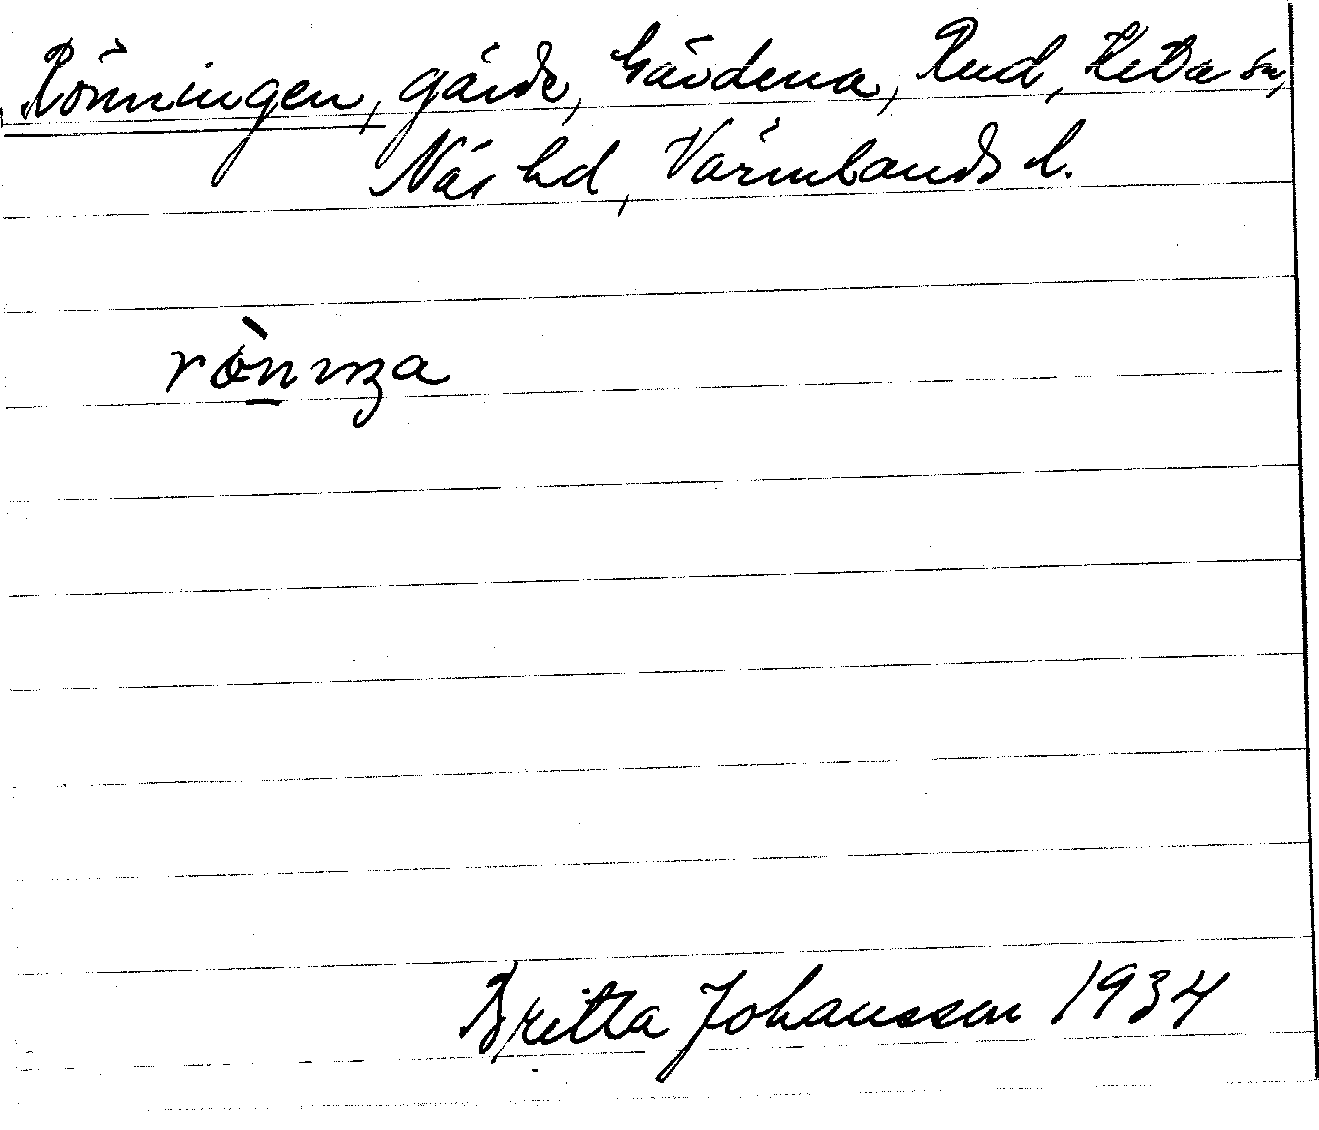 Rönningen, gärde, Gärdena, Rud, Kila sn,
Näs hd, Värmlands l.
rònnŋa
Britta Johansson 1934